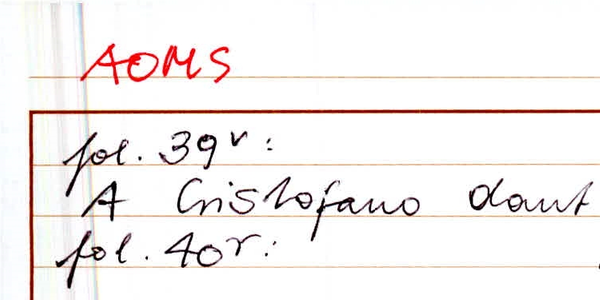 AOMS
fol. 39v:
A Cristofano dant
fol. 40r: